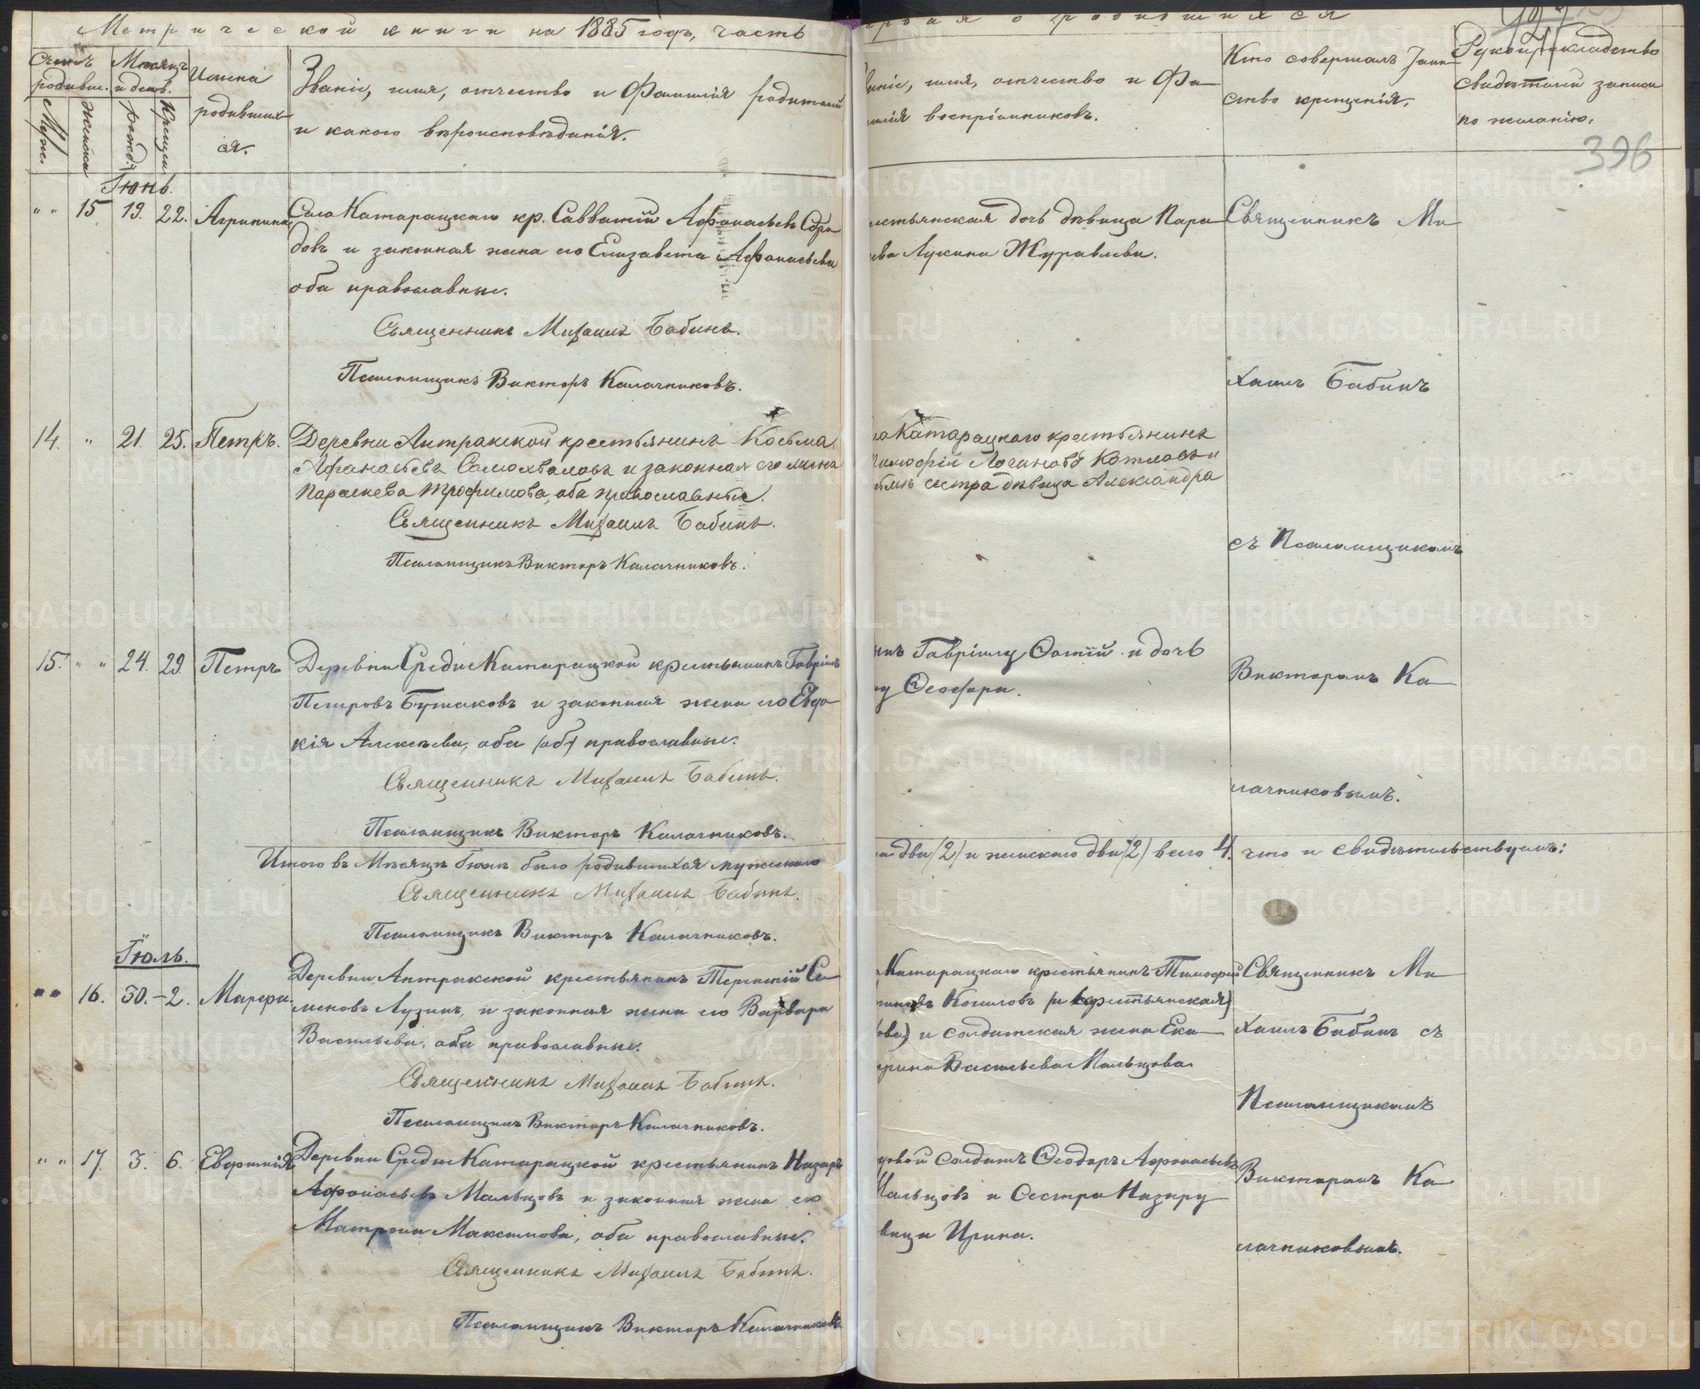 Метрической книги на 1885 годъ, часть
первая о родившихся
Счетъ родивш.
Мѣсяцъ и день.
Имена родившихся.
Званіе, имя, отчество и Фамилія родителей
и какого вѣроисповѣданія.
Муж.
Женска
рожд.
Крещен
Званіе, имя, отчество и Фа
милія воспріемниковъ.
Кто совершалъ Таин
ство крещенія.
Рукоприкладство
свидѣтелей записи
по желанію.
396
Іюнь.
" " 15 19. 22. Агрипина
Села Катарацкаго кр. Савватій Афонасьевъ
и законная жена его Елизавета Афонасьева
оба православные.
Священникъ Михаилъ Бабинъ.
Псаломщикъ Викторъ Калачниковъ.
крестьянская дочь дѣвица Пара
ева Лукина Журавлева.
Священникъ Ми
хаилъ Бабинъ
14. " 21. 25. Петръ.
Деревни Антракской крестьянинъ Косьма
Афанасьевъ Самохваловъ и законная его жена
Параскева Трофимова, оба православные.
Священникъ Михаилъ Бабинъ.
Псаломщикъ Викторъ Калачниковъ.
Катарацкаго крестьянинъ
Тимофей Логиновъ Копиловъ и
сестра дѣвица Александра
съ Псаломщикомъ
15. " " 24. 29 Петръ
Деревни Средне Катарацкой крестьянинъ Гавріилъ
Петровъ Бушаковъ и законная жена его Евдо
кія Алексѣева, оба (об) православные.
Священникъ Михаилъ Бабинъ.
Псаломщикъ Викторъ Калачниковъ.
Гавріилу и дочь
Викторомъ Ка
лачниковымъ.
Итого въ Мѣсяцѣ Іюнѣ было родившихся мужескаго
два (2) и женскаго два (2) всего 4. что и свидѣтельствуемъ:
Священникъ Михаилъ Бабинъ.
Псаломщикъ Викторъ Калачниковъ.
Іюль.
" " 16. 30. – 2. Марфа
Деревни Антракской крестьянинъ Терентій Се
меновъ Лузинъ, и законная жена его Варвара
Васильева, оба православные.
Священникъ Михаилъ Бабинъ.
Псаломщикъ Викторъ Калачниковъ.
Катарацкаго крестьянинъ Тимофей
Копиловъ (и крестьянская)
и солдатская жена Ека
терина Васильева Мальцова
Священникъ Ми
хаилъ Бабинъ съ
Псаломщикомъ
" " 17. 3. 6. Евфимія
Деревни Средне Катарацкой крестьянинъ Назаръ
Афонасьевъ Мальцовъ и законная жена его
Матрона Максимова, оба православные.
Священникъ Михаилъ Бабинъ.
Псаломщикъ Викторъ Калачниковъ
солдатъ Ѳеодоръ Афонасьевъ
Мальцовъ и Сестра Назару
дѣвица Ирина.
Викторомъ Ка
лачниковымъ.
METRIKI.GASO-URAL.RU